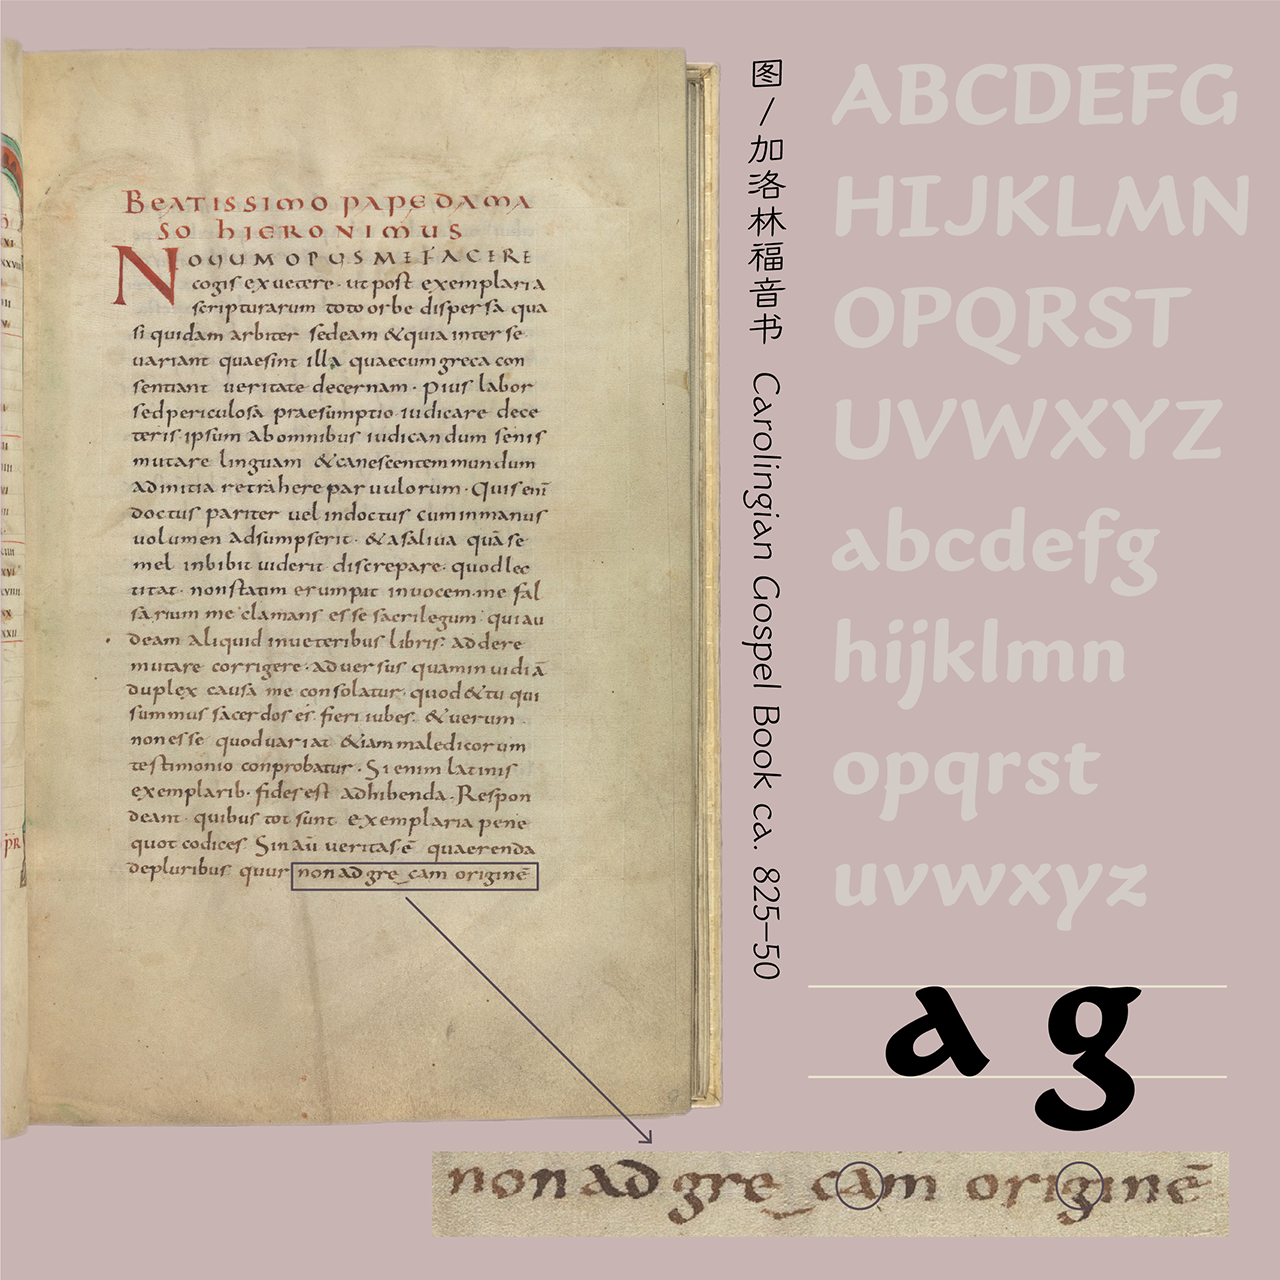 BEATISSIMO PAPE DAMA
SO hIERONIMUS
NOUUM OPUS ME FACERE
cogis ex uetere · ut post exemplaria
scripturarum toto orbe dispersa qua
si quidam arbiter sedeam & quia inter se
uariant quaesint illa quaecum greca con
sentiant ueritate decernam · Pius labor
sed periculosa praesumptio · iudicare dece
teris · ipsum ab omnibus iudicandum · senis
mutare linguam & canescentem mundum
ad initia retrahere paruulorum · Quis enī
doctus pariter uel indoctus cum in manus
uolumen adsumpserit · & a saliua quā se
mel inbibit uiderit discrepare · quod lec
titat · non statim erumpat in uocem · me fal
sarium me clamans esse sacrilegum · qui au
deam aliquid in ueteribus libris · addere
mutare corrigere · aduersus quam inuidiā
duplex causa me consolatur · quod & tu qui
summus sacerdos es fieri iubes · & uerum
non esse quod uariat &iam maledicorum
testimonio conprobatur · Si enim latinis
exemplarib · fides est adhibenda · Respon
deant · quibus tot sunt exemplaria pene
quot codices Sin aū ueritas ē quaerenda
de pluribus quur non ad gre_cam originē
图/加洛林福音书 Carolingian Gospel Book ca. 825–50
ABCDEFG
HIJKLMN
OPQRST
UVWXYZ
abcdefg
hijklmn
opqrst
uvwxyz
a g
non ad gre_cam originē